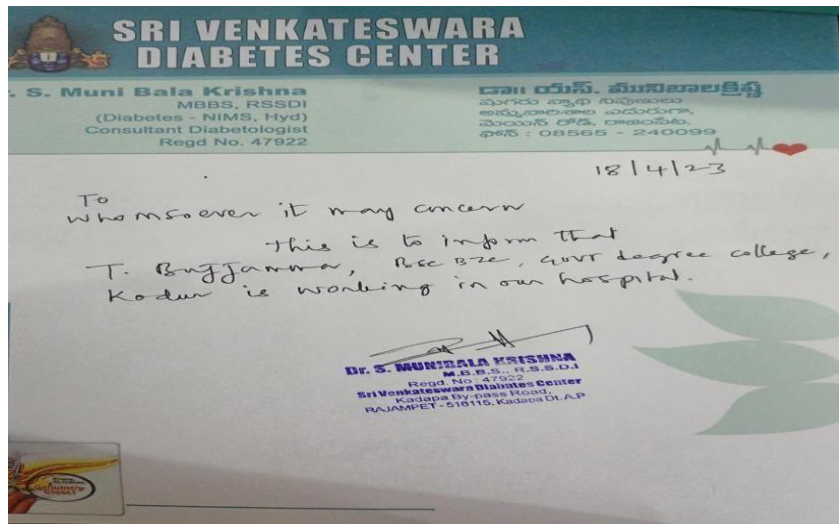 SRI VENKATESWARA
DIABETES CENTER
. S. Muni Bala Krishna
MBBS, RSSDI
(Diabetes - NIMS, Hyd)
Consultant Diabetologist
Regd No. 47922
డా॥ యస్. మునిబాలక్రిష్ణ
షుగరు వ్యాధి నిపుణులు
ఎదురుగా,
మెయిన్ రోడ్, రాజంపేట.
ఫోన్ : 08565 - 240099
18/4/23
To
whomsoever it may concern
this is to inform that
T. Bujjamma, Bsc BZC, Govt degree college,
Kodur is working in our hospital.
Dr. S. MUNIBALA KRISHNA
M.B.B.S., R.S.S.D.I
Regd. No : 47922
Sri Venkateswara Diabates Center
Kadapa By-pass Road,
RAJAMPET - 516115, Kadapa Dt. A.P